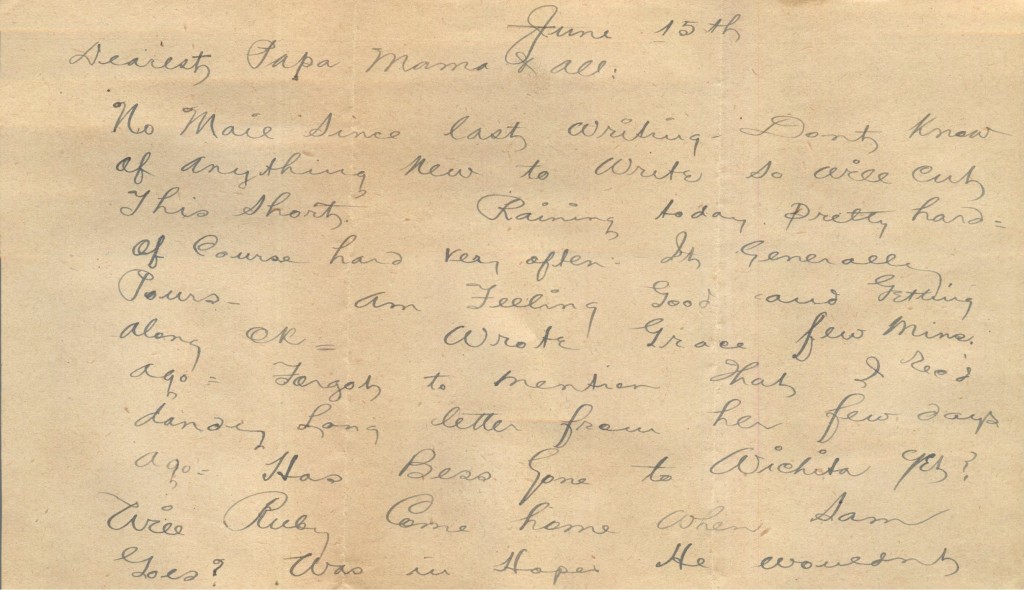 June 15th
Dearest Papa Mama & all:
No Mail Since last writing - Dont Know
of anything New to Write so will cut
This short. Raining today Pretty hard =
Of Course hard very often - It Generally
Pours - Am Feeling Good and Getting
along OK = Wrote Grace few Mins.
ago = Forgot to mention That I Rec'd
dandy Long letter from her few days
ago = Has Bess Gone to Wichita Yet?
Will Ruby Come home when Sam
Goes? Was in Hopes He wouldnt